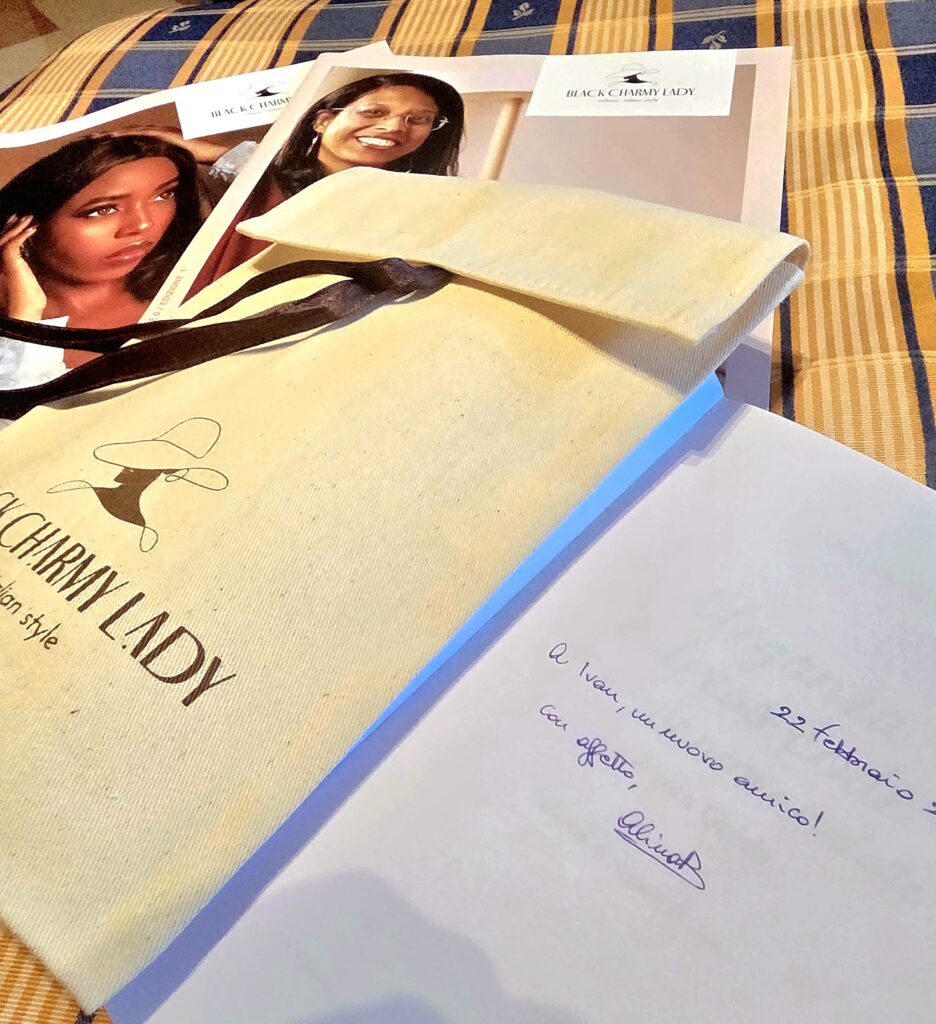 BLACK CHARMY
BLACK CHARMY LADY
italian style
EDIZIONE 1
CHARMY LADY
style
22 febbraio
A Ivan, un nuovo amico!
con affetto,
AlinaB